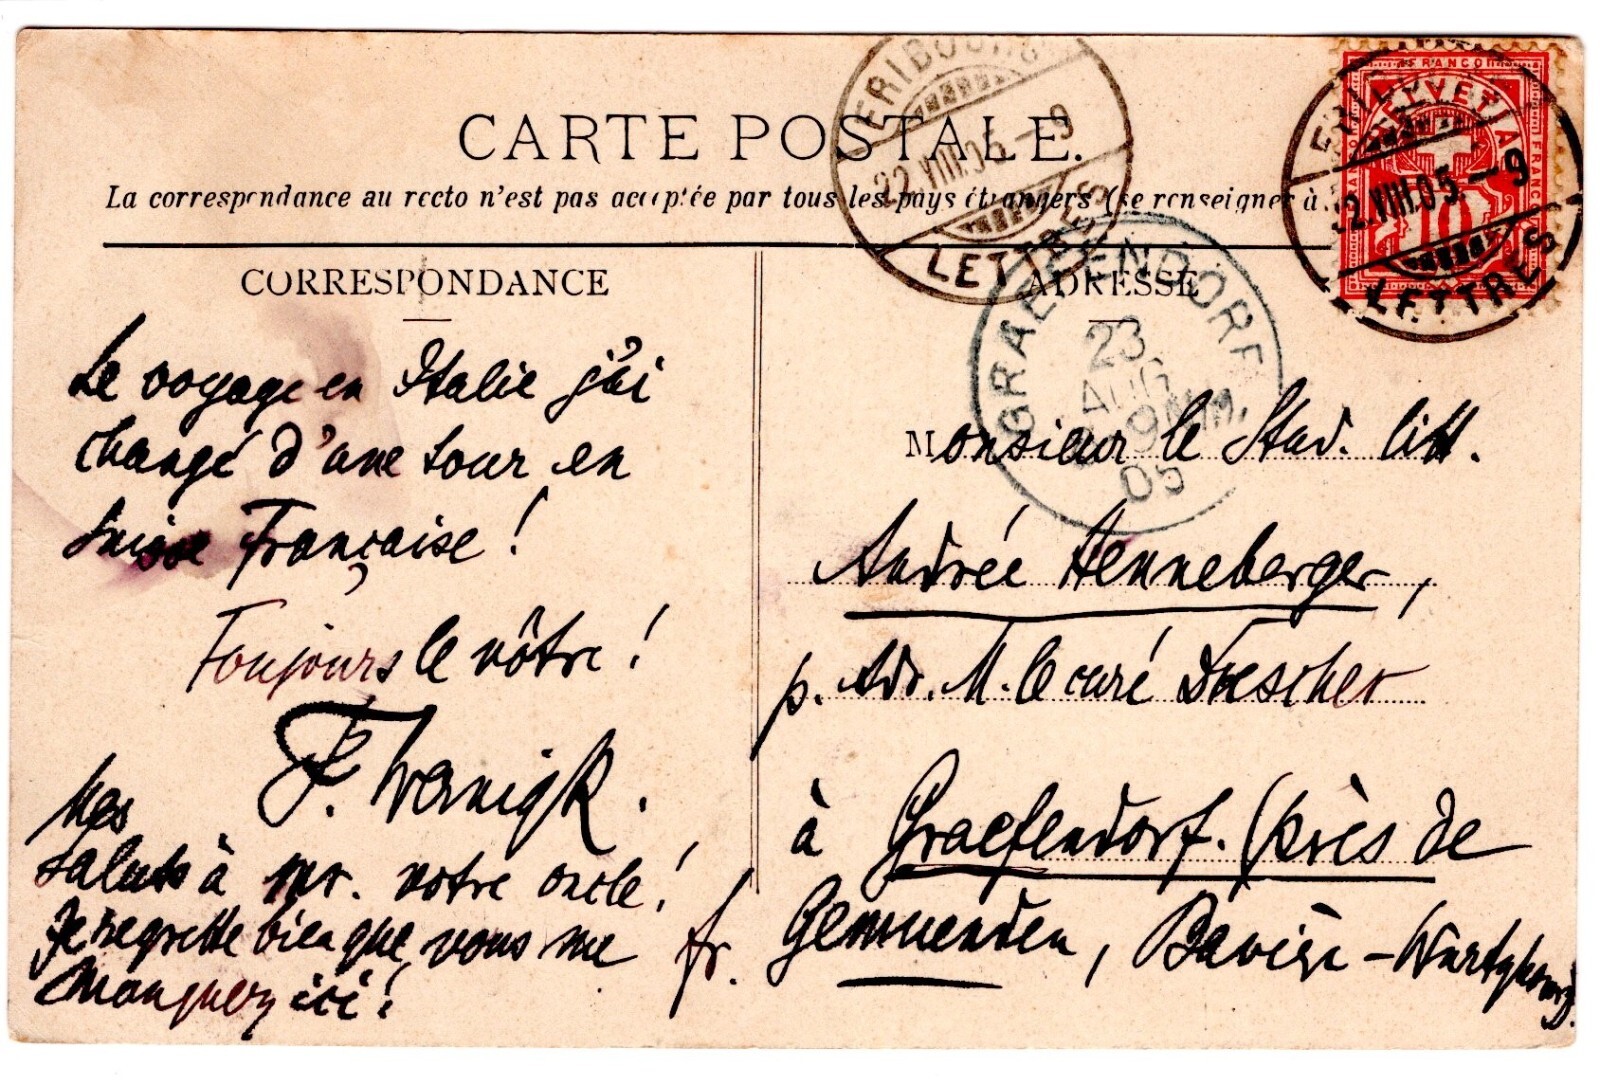 CARTE POSTALE.
La correspondance au recto n'est pas acceptée par tous les pays étrangers (se renseigner à
CORRESPONDANCE
Le voyage en Italie j'ai
changé d'une tour en
Suisse Française!
Toujours le vôtre!
F.
Mes
saluts à mr. votre oncle!
Je regrette bien que vous me
manquez ici!
ADRESSE
Monsieur le Stud. litt.
Andrée Henneberger,
p. Adr. M. le curé
à Graefendorf. (près de
fr. Gemuenden, Bavière - Wurtzbourg).
FRIBOURG
22.VIII.05.-9
LETTRES
GRAEFENDORF
23
AUG
05
FRANCO
HELVETIA
10
FRANCO
FRIBOURG
22.VIII.05.-9
LETTRES